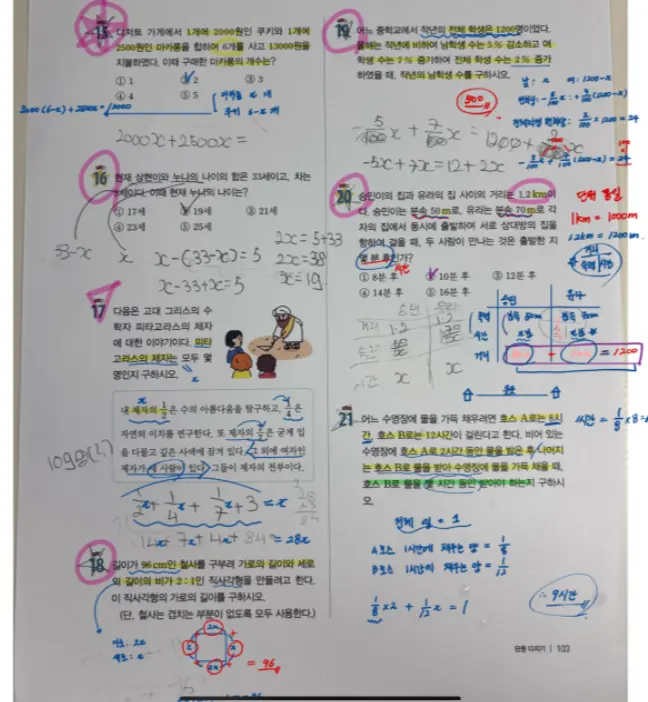 15 디저트 가게에서 1개에 2000원인 쿠키와 1개에
2500원인 마카롱을 합하여 6개를 사고 13000원을
지불하였다. 이때 구매한 마카롱의 개수는?
① 1 ② 2 ③ 3
④ 4 ⑤ 5
마카롱 x개
쿠키 6-x개
2000x+2500x=
16 현재 상현이와 누나의 나이의 합은 33세이고, 차는
5세이다. 이때 현재 누나의 나이는?
① 17세 ② 19세 ③ 21세
④ 23세 ⑤ 25세
33-x x x-(33-x)=5
x-33+x=5
2x=5+33
2x=38
x=19
17 다음은 고대 그리스의 수
학자 피타고라스의 제자
에 대한 이야기이다. 피타
고라스의 제자는 모두 몇
명인지 구하시오.
x
x
내 제자의 1/2은 수의 아름다움을 탐구하고, 1/4은
자연의 이치를 연구한다. 또 제자의 1/7은 굳게 입
을 다물고 깊은 사색에 잠겨 있다. 그 외에 여자인
제자가 세 사람이 있다. 그들이 제자의 전부이다.
1/2x+1/4x+1/7x+3=x
14x+7x+4x+84=28x
18 길이가 96 cm인 철사를 구부려 가로의 길이와 세로
의 길이의 비가 2 : 1인 직사각형을 만들려고 한다.
이 직사각형의 가로의 길이를 구하시오.
(단, 철사는 겹치는 부분이 없도록 모두 사용한다.)
가로 : 2x
세로 : x
2x
x x
2x
= 96
19 어느 중학교에서 작년의 전체 학생은 1200명이었다.
올해는 작년에 비하여 남학생 수는 5 % 감소하고 여
학생 수는 7 % 증가하여 전체 학생 수는 2 % 증가
하였을 때, 작년의 남학생 수를 구하시오.
남 : x 여 : 1200-x
500
-5/100x + 7/100(1200-x)
2/100 × 1200 = 24
-5x+7x=12+2x
-5/100x + 7/100(1200-x) = 24
20 승민이의 집과 유라의 집 사이의 거리는 1.2 km이
다. 승민이는 분속 50 m로, 유라는 분속 70 m로 각
자의 집에서 동시에 출발하여 서로 상대방의 집을
향하여 걸을 때, 두 사람이 만나는 것은 출발한 지
몇 분 후인가?
① 8분 후 ② 10분 후 ③ 12분 후
④ 14분 후 ⑤ 16분 후
시간
단위 통일
1km = 1000m
1.2km = 1200m
거리
속력 시간
승민 유라
속력
시간
거리
= 1200
21 어느 수영장에 물을 가득 채우려면 호스 A로는 8시
간, 호스 B로는 12시간이 걸린다고 한다. 비어 있는
수영장에 호스 A로 2시간 동안 물을 받은 후 나머지
는 호스 B로 물을 받아 수영장에 물을 가득 채울 때,
호스 B로 물을 몇 시간 동안 받아야 하는지 구하시
오.
전체 일 = 1
A호스 1시간에 채우는 양 = 1/8
B호스 1시간에 채우는 양 = 1/12
1/8×2 + 1/12x = 1
∴ 9시간
단원 다지기 | 103